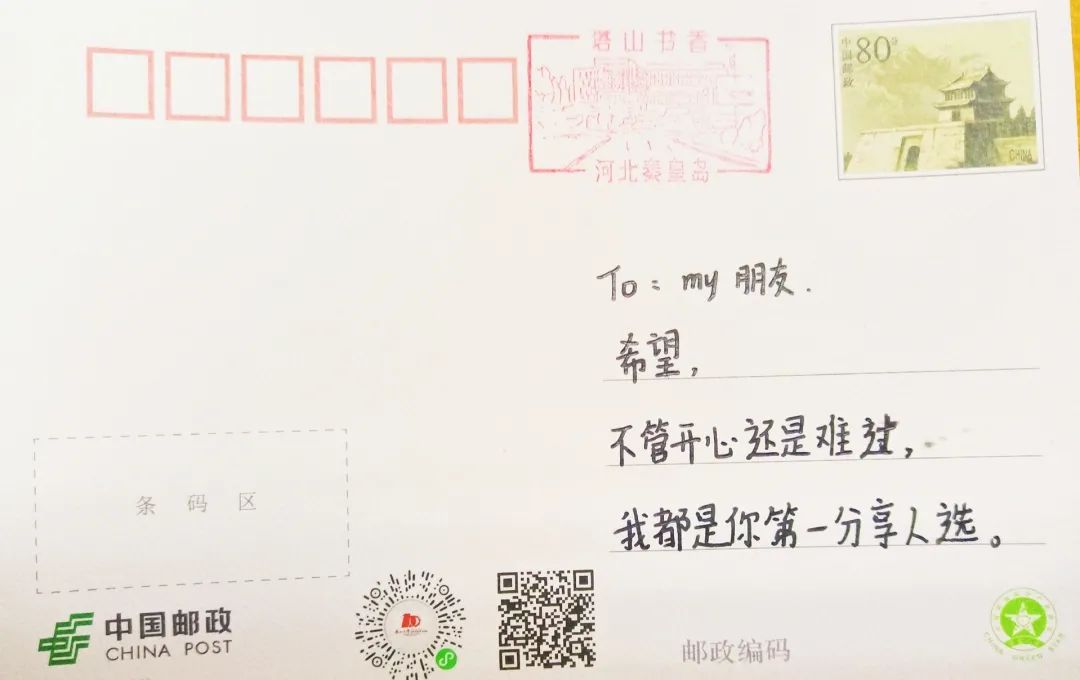 塔山书香
河北秦皇岛
中国邮政
80分
CHINA
To: my 朋友.
希望,
不管开心还是难过,
我都是你第一分享人选。
条码区
中国邮政
CHINA POST
邮政编码